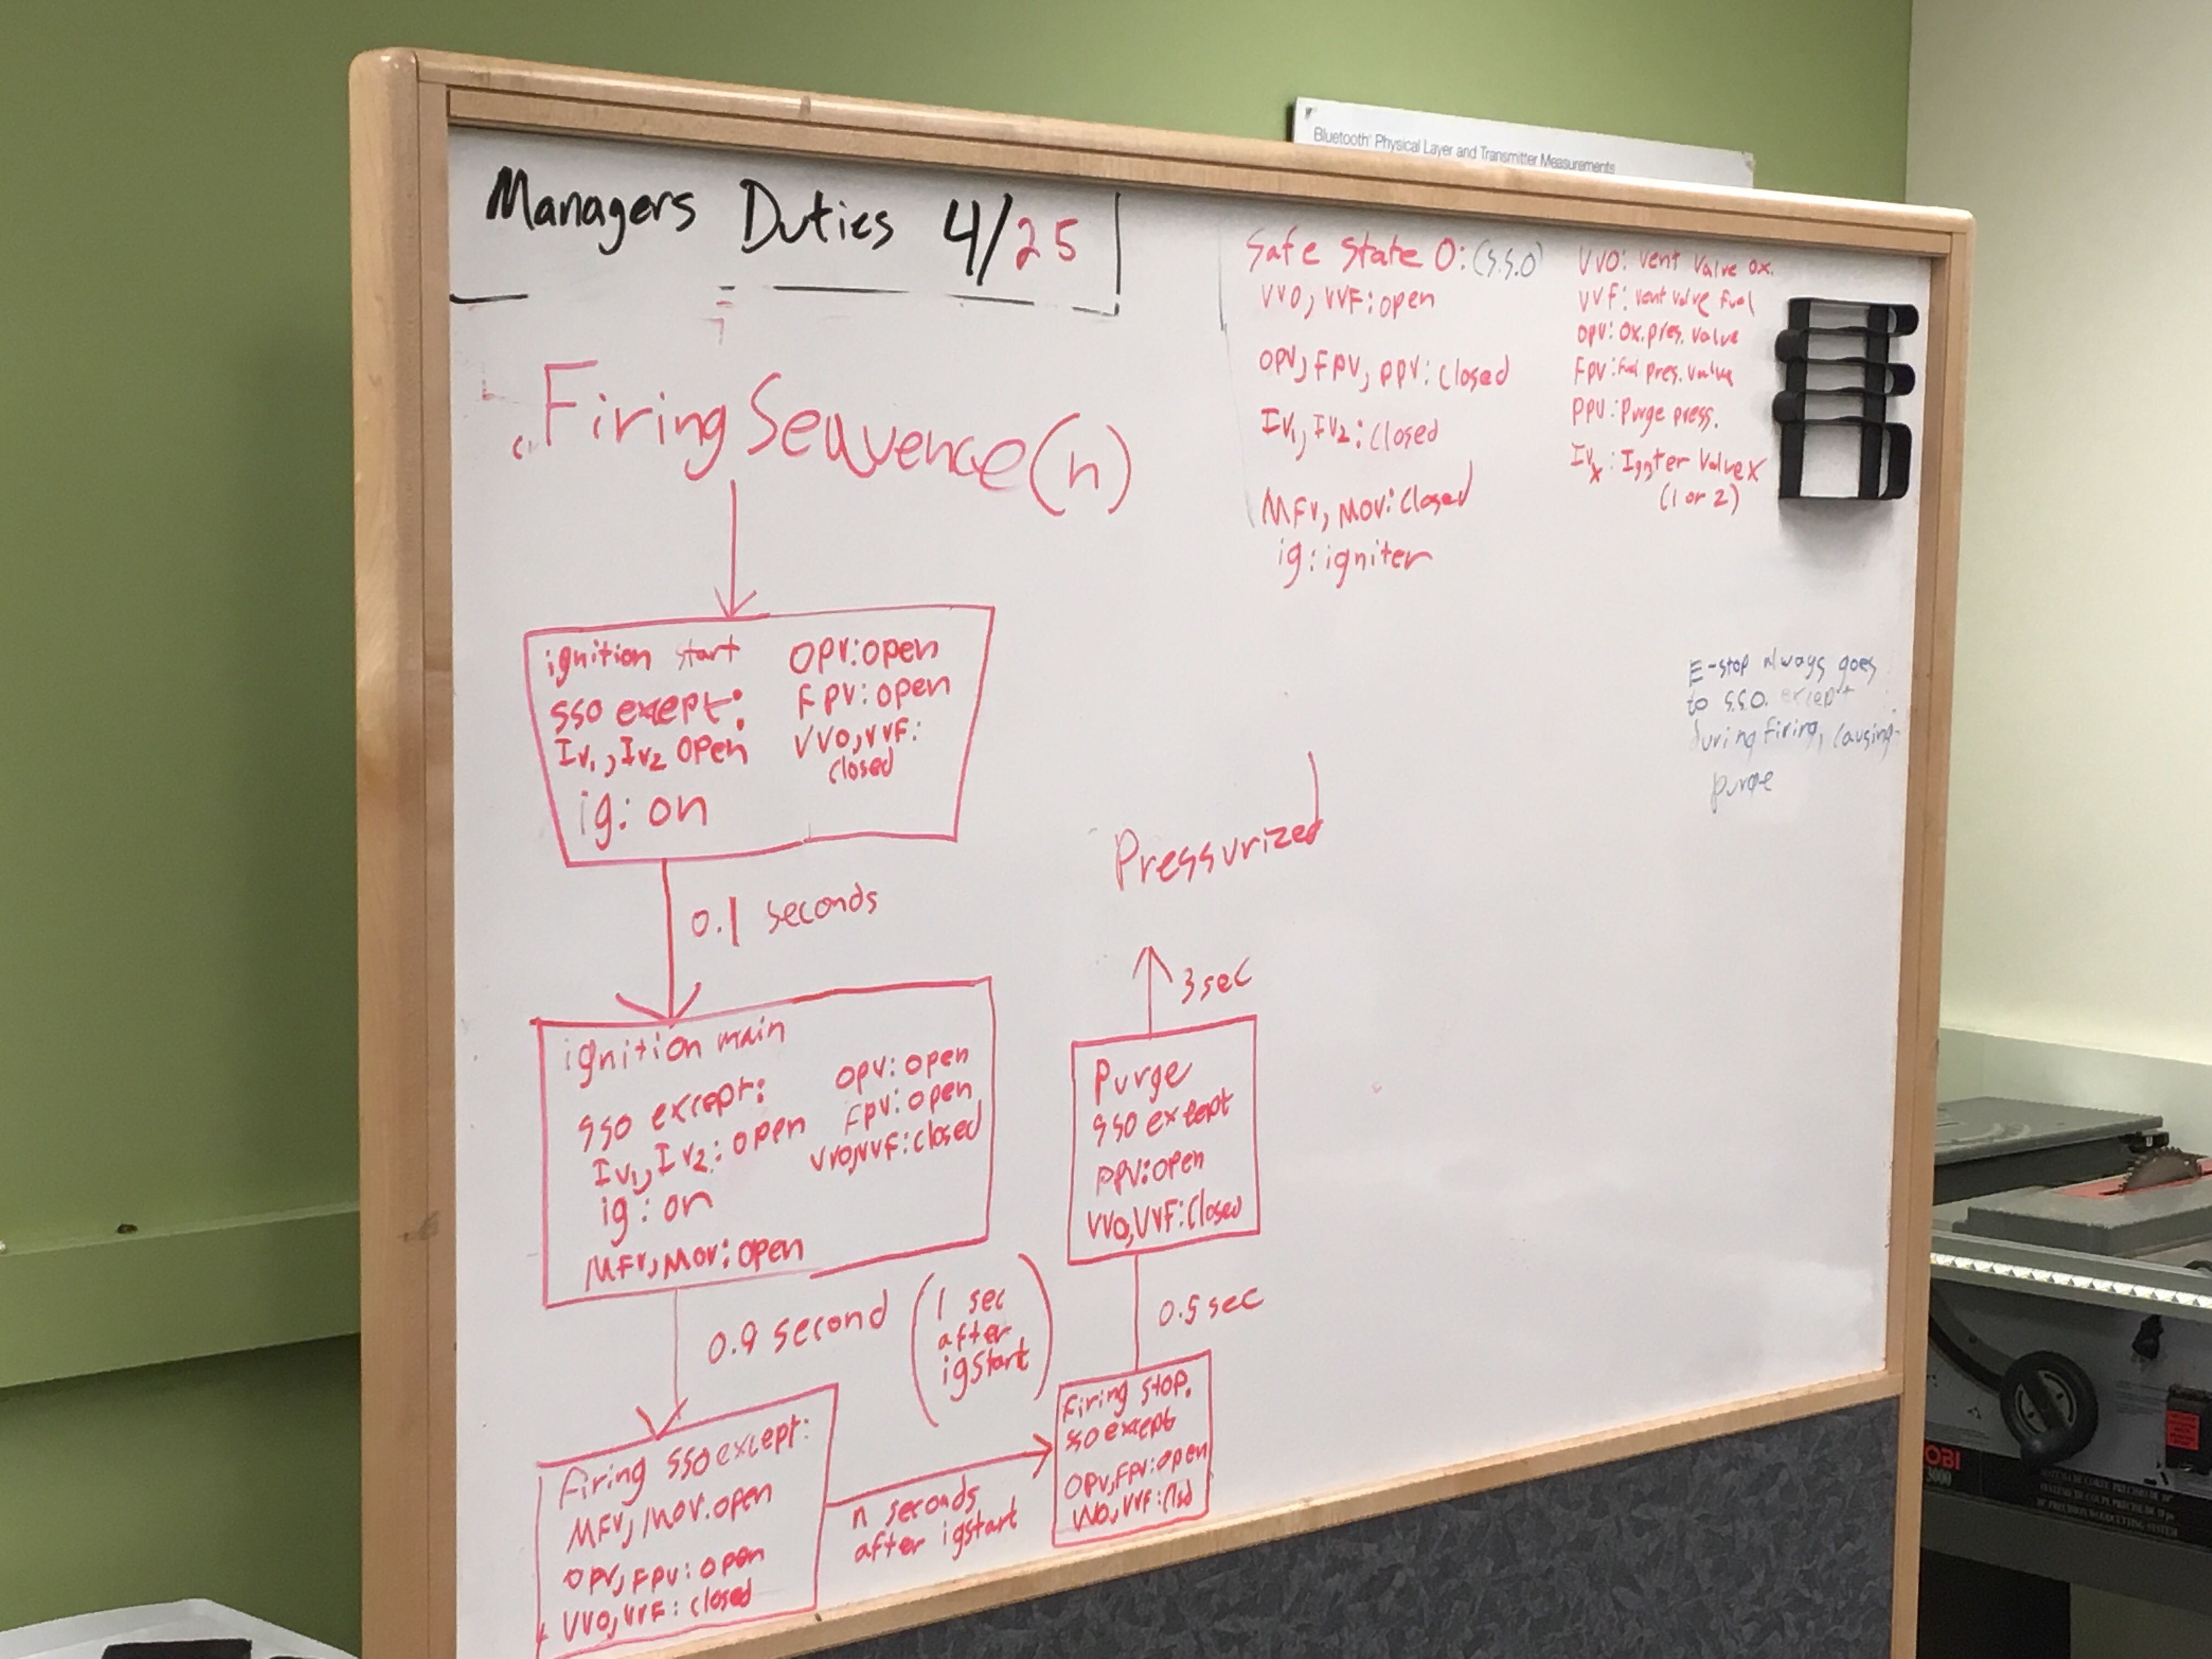 Bluetooth® Physical Layer and Transmitter Measurements
Managers Duties 4/25
Firing Sequence(n)
ignition start
SSO except:
Iv1, Iv2 open
ig: on
OPV: open
FPV: open
VVO, VVF:
closed
0.1 seconds
ignition main
SSO except:
Iv1, Iv2: open
ig: on
MFV, MOV: open
OPV: open
FPV: open
VVO, VVF: closed
0.9 second
(1 sec
after
igstart)
firing SSO except:
MFV, MOV: open
OPV, FPV: open
VVO, VVF: closed
n seconds
after igstart
Firing stop.
SSO except
OPV, FPV: open
VVO, VVF: Clsd
0.5 sec
Purge
SSO except
PPV: open
VVO, VVF: Closed
3 sec
Pressurized
Safe State 0: (S.S.0)
VVO, VVF: open
OPV, FPV, PPV: closed
Iv1, Iv2: closed
MFV, MOV: Closed
ig: igniter
VVO: vent valve ox.
VVF: vent valve fuel
OPV: Ox. pres. valve
FPV: fuel pres. valve
PPV: Purge press.
IVx: Igniter Valve X
(1 or 2)
E-stop always goes
to S.S.O. except
during firing, causing
purge
OBI
3000